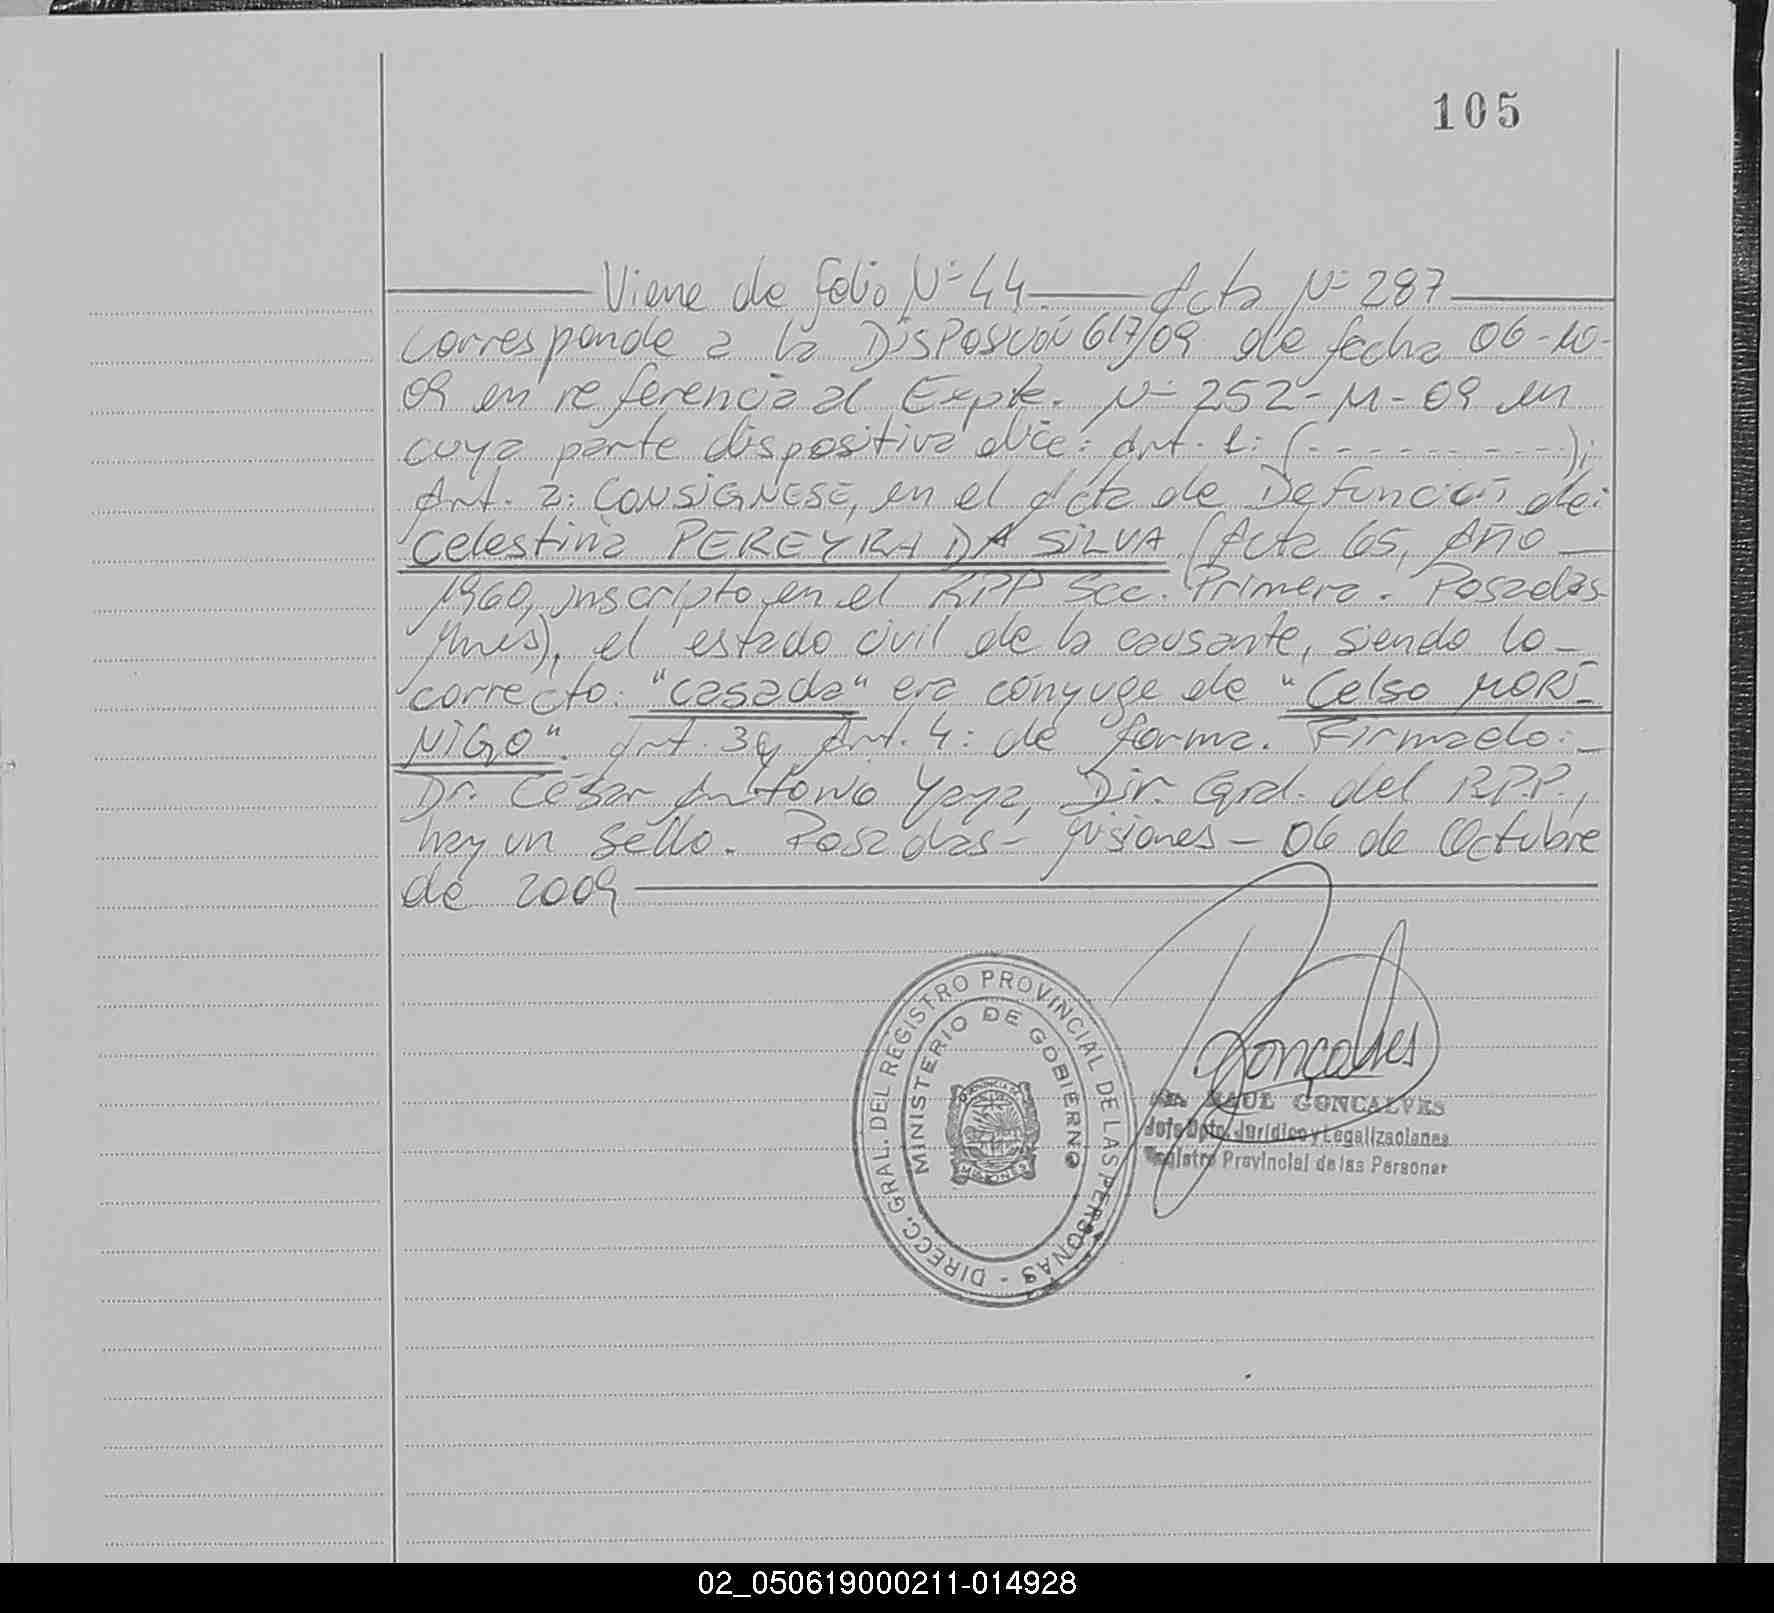 105
Viene de folio Nº 44. Acta Nº 287
corresponde a la DISPOSICIÓN 617/09 de fecha 06-10-
09 en referencia al Expte. Nº 252-M-09 en
cuya parte dispositiva dice: Art. 1: (- - - - - - - - - -);
Art. 2: CONSIGNESE, en el Acta de Defunción de:
Celestina PEREYRA DA SILVA (Acta 65, Año
1960, inscripto en el RPP Sec. Primera. Posadas
Mnes), el estado civil de la causante, siendo lo
correcto: "casada" era cónyuge de "Celso MORÍ-
NIGO". Art. 3 y Art. 4: de forma. Firmado:
Dr. César Antonio Yaya, Dir. Gral. del R.P.P.,
hay un sello. Posadas - Misiones - 06 de Octubre
de 2009
DIRECC. GRAL. DEL REGISTRO PROVINCIAL DE LAS PERSONAS -
MINISTERIO DE GOBIERNO
PROVINCIA
MISIONES
Gonçalves
RAUL GONCALVES
Jefe Dpto. Jurídico y Legalizaciones
Registro Provincial de las Personas
02_050619000211-014928